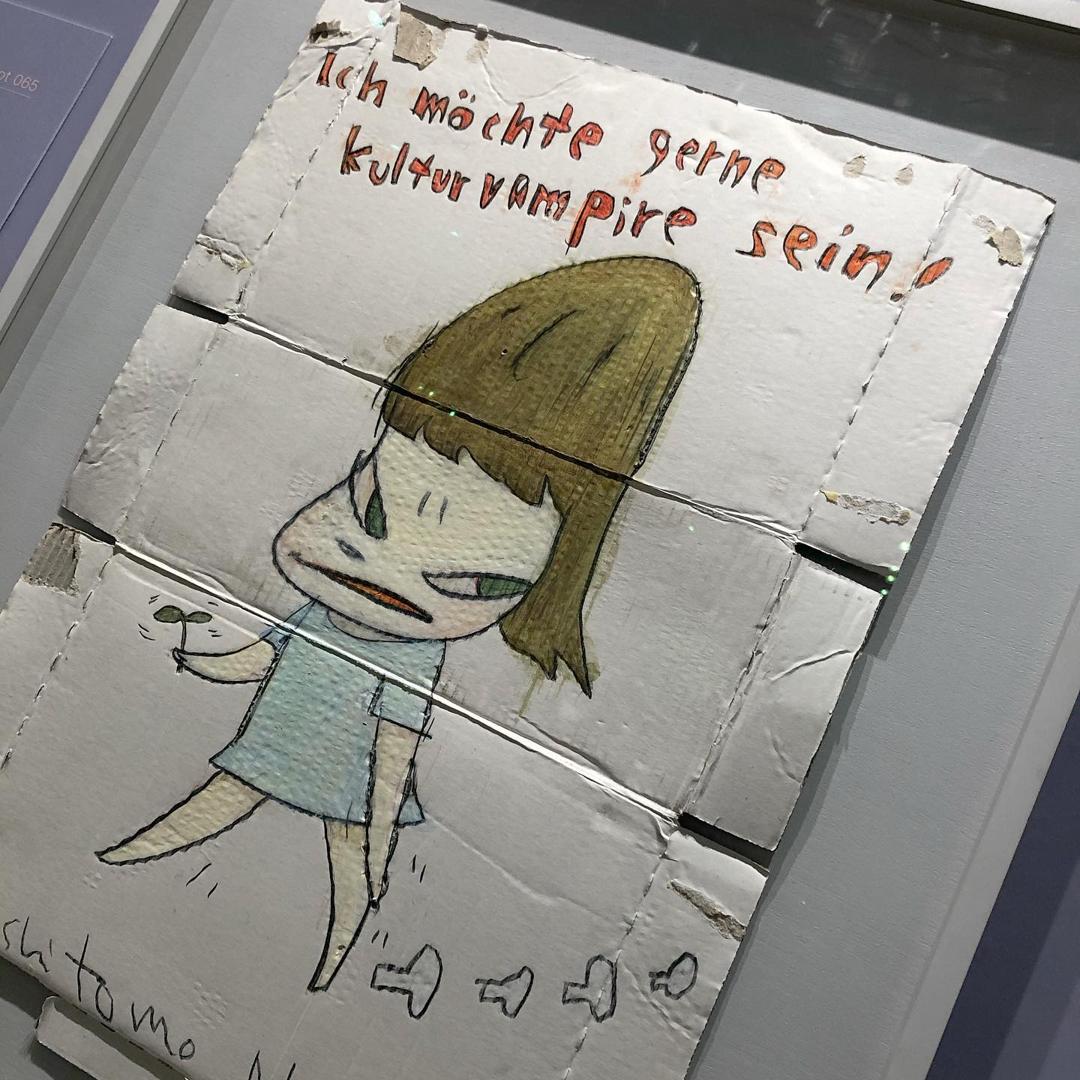 ot 065
Ich möchte gerne
kulturvampire sein!
shitomo N